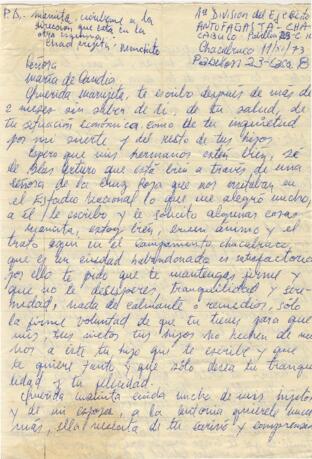 P.D. mamita, escríbeme a la
dirección que está en la
otra esquina.
1ª Division del Ejército
ANTOFAGASTA - CHA-
CABUCO Pabellón 23-C
Chacabuco 11/XI/73
Pabellón 23-Casa 8
Señora
María de Candia
Querida Mamita, te escribo después de más de
2 meses sin saber de ti, de tu salud, de
tu situación económica como de tu inquietud
por mi suerte y del resto de tus hijos
Espero que mis hermanos estén bien, sé
de Blas Arturo que está bien a través de una
señora de la Cruz Roja que nos visitaba en
el Estadio Nacional lo que me alegró mucho,
a él le escribo y le solicito algunas cosas
Mamita, estoy bien, buen ánimo y el
trato aquí en el campamento chacabuco,
que es una ciudad abandonada es satisfactorio
por ello te pido que te mantengas firme y
que no te desesperes, tranquilidad y sere-
nidad, nada de calmante o remedios, sólo
la firme voluntad de que tu tienes para que
mis, tus nietos tus hijos no hechen de me-
nos a este tu hijo que te escribe y que
te quiere tanto y que sólo desea tu tranqui-
lidad y tu felicidad.
Querida mamita cuida mucho de mis hijitos
y de mi esposa, a la Antonia quiérele mucho
más, ella necesita de tu cariño y comprensión